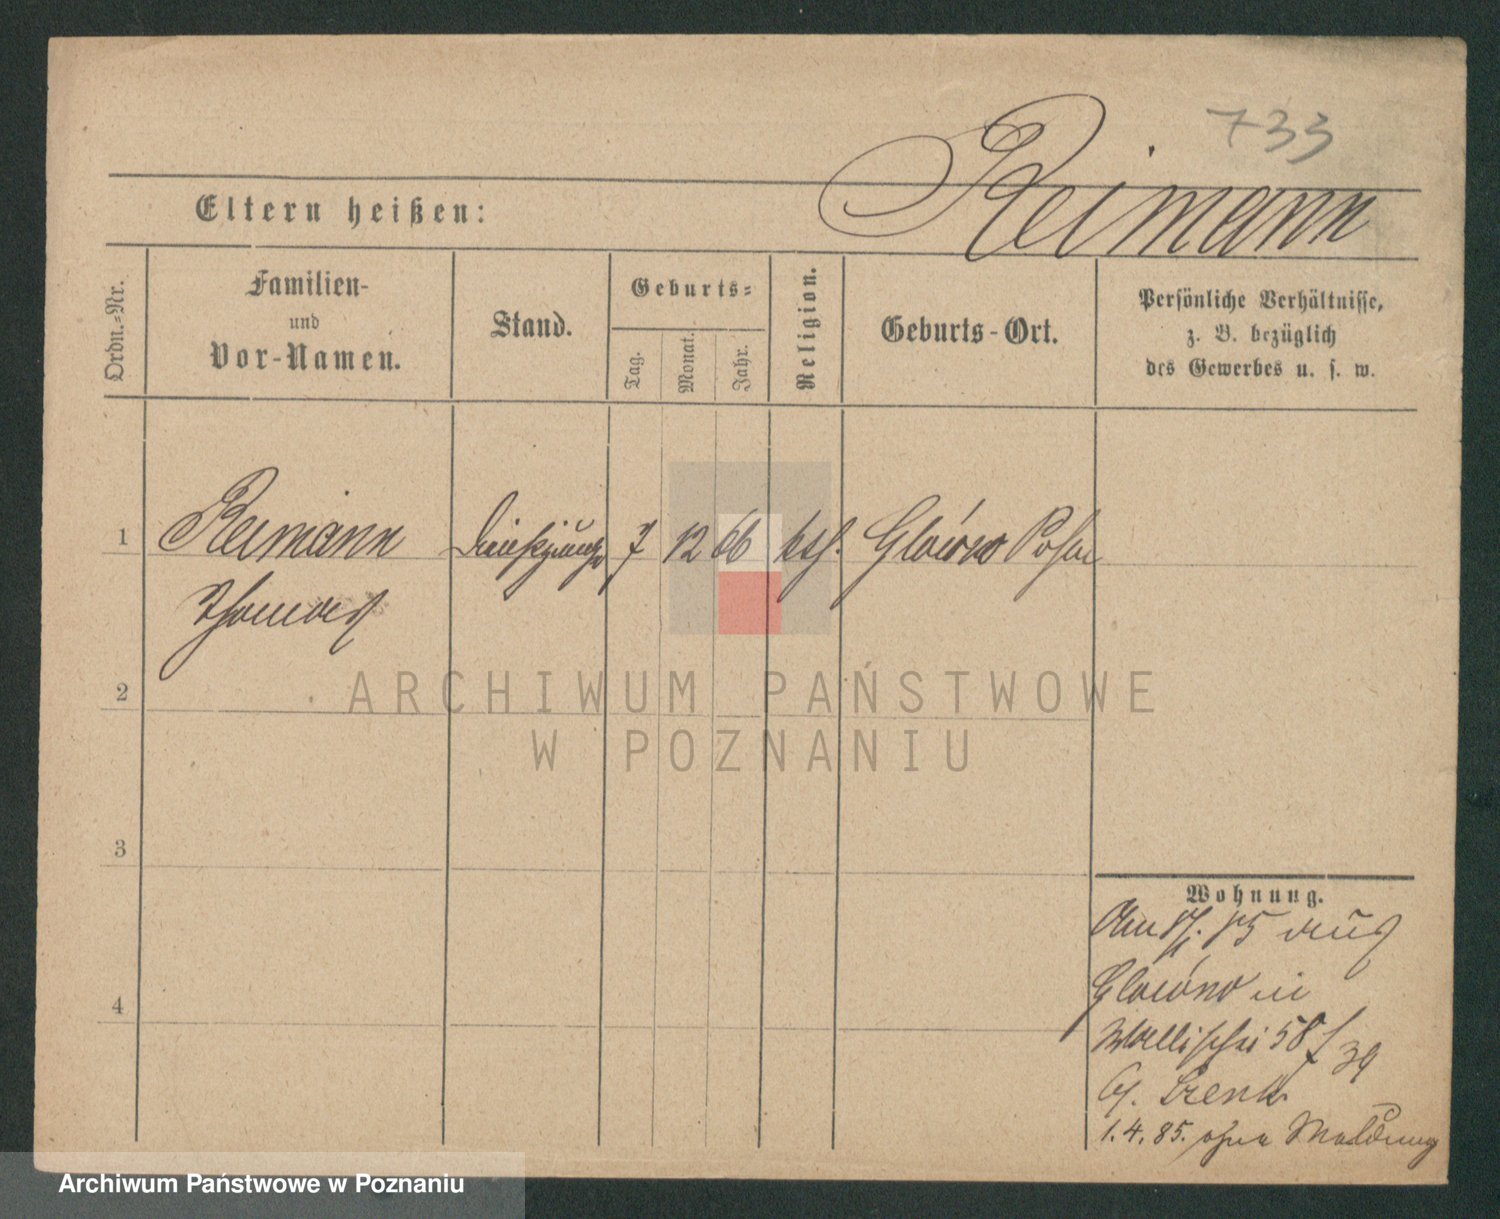 733
Reimann
Eltern heißen:
Ordn.-Nr.
Familien-
und
Vor-Namen.
Stand.
Geburts-
Tag.
Monat.
Jahr.
Religion.
Geburts-Ort.
Persönliche Verhältnisse,
z. B. bezüglich
des Gewerbes u. s. w.
1
Reimann 7 12 66 kth. Glówno Posen
Thomas
2
ARCHIWUM PAŃSTWOWE
W POZNANIU
3
Wohnung.
85 aus
Glówno in
4
Wallischei 58 / 39
1.4.85. ohne Meldung
Archiwum Państwowe w Poznaniu